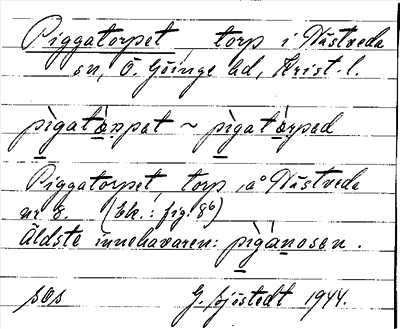 Piggatorpet, torp i Nästveda
sn, Ö. Göinge hd, Krist. l.
pìgatår̀pat ~ pìgatår̀pad
Piggatorpet, torp, å Nästveda
nr 8. (Ek.: fig. 86)
Äldste innehavaren: pìgànosen.
sos G. Sjöstedt 1944.